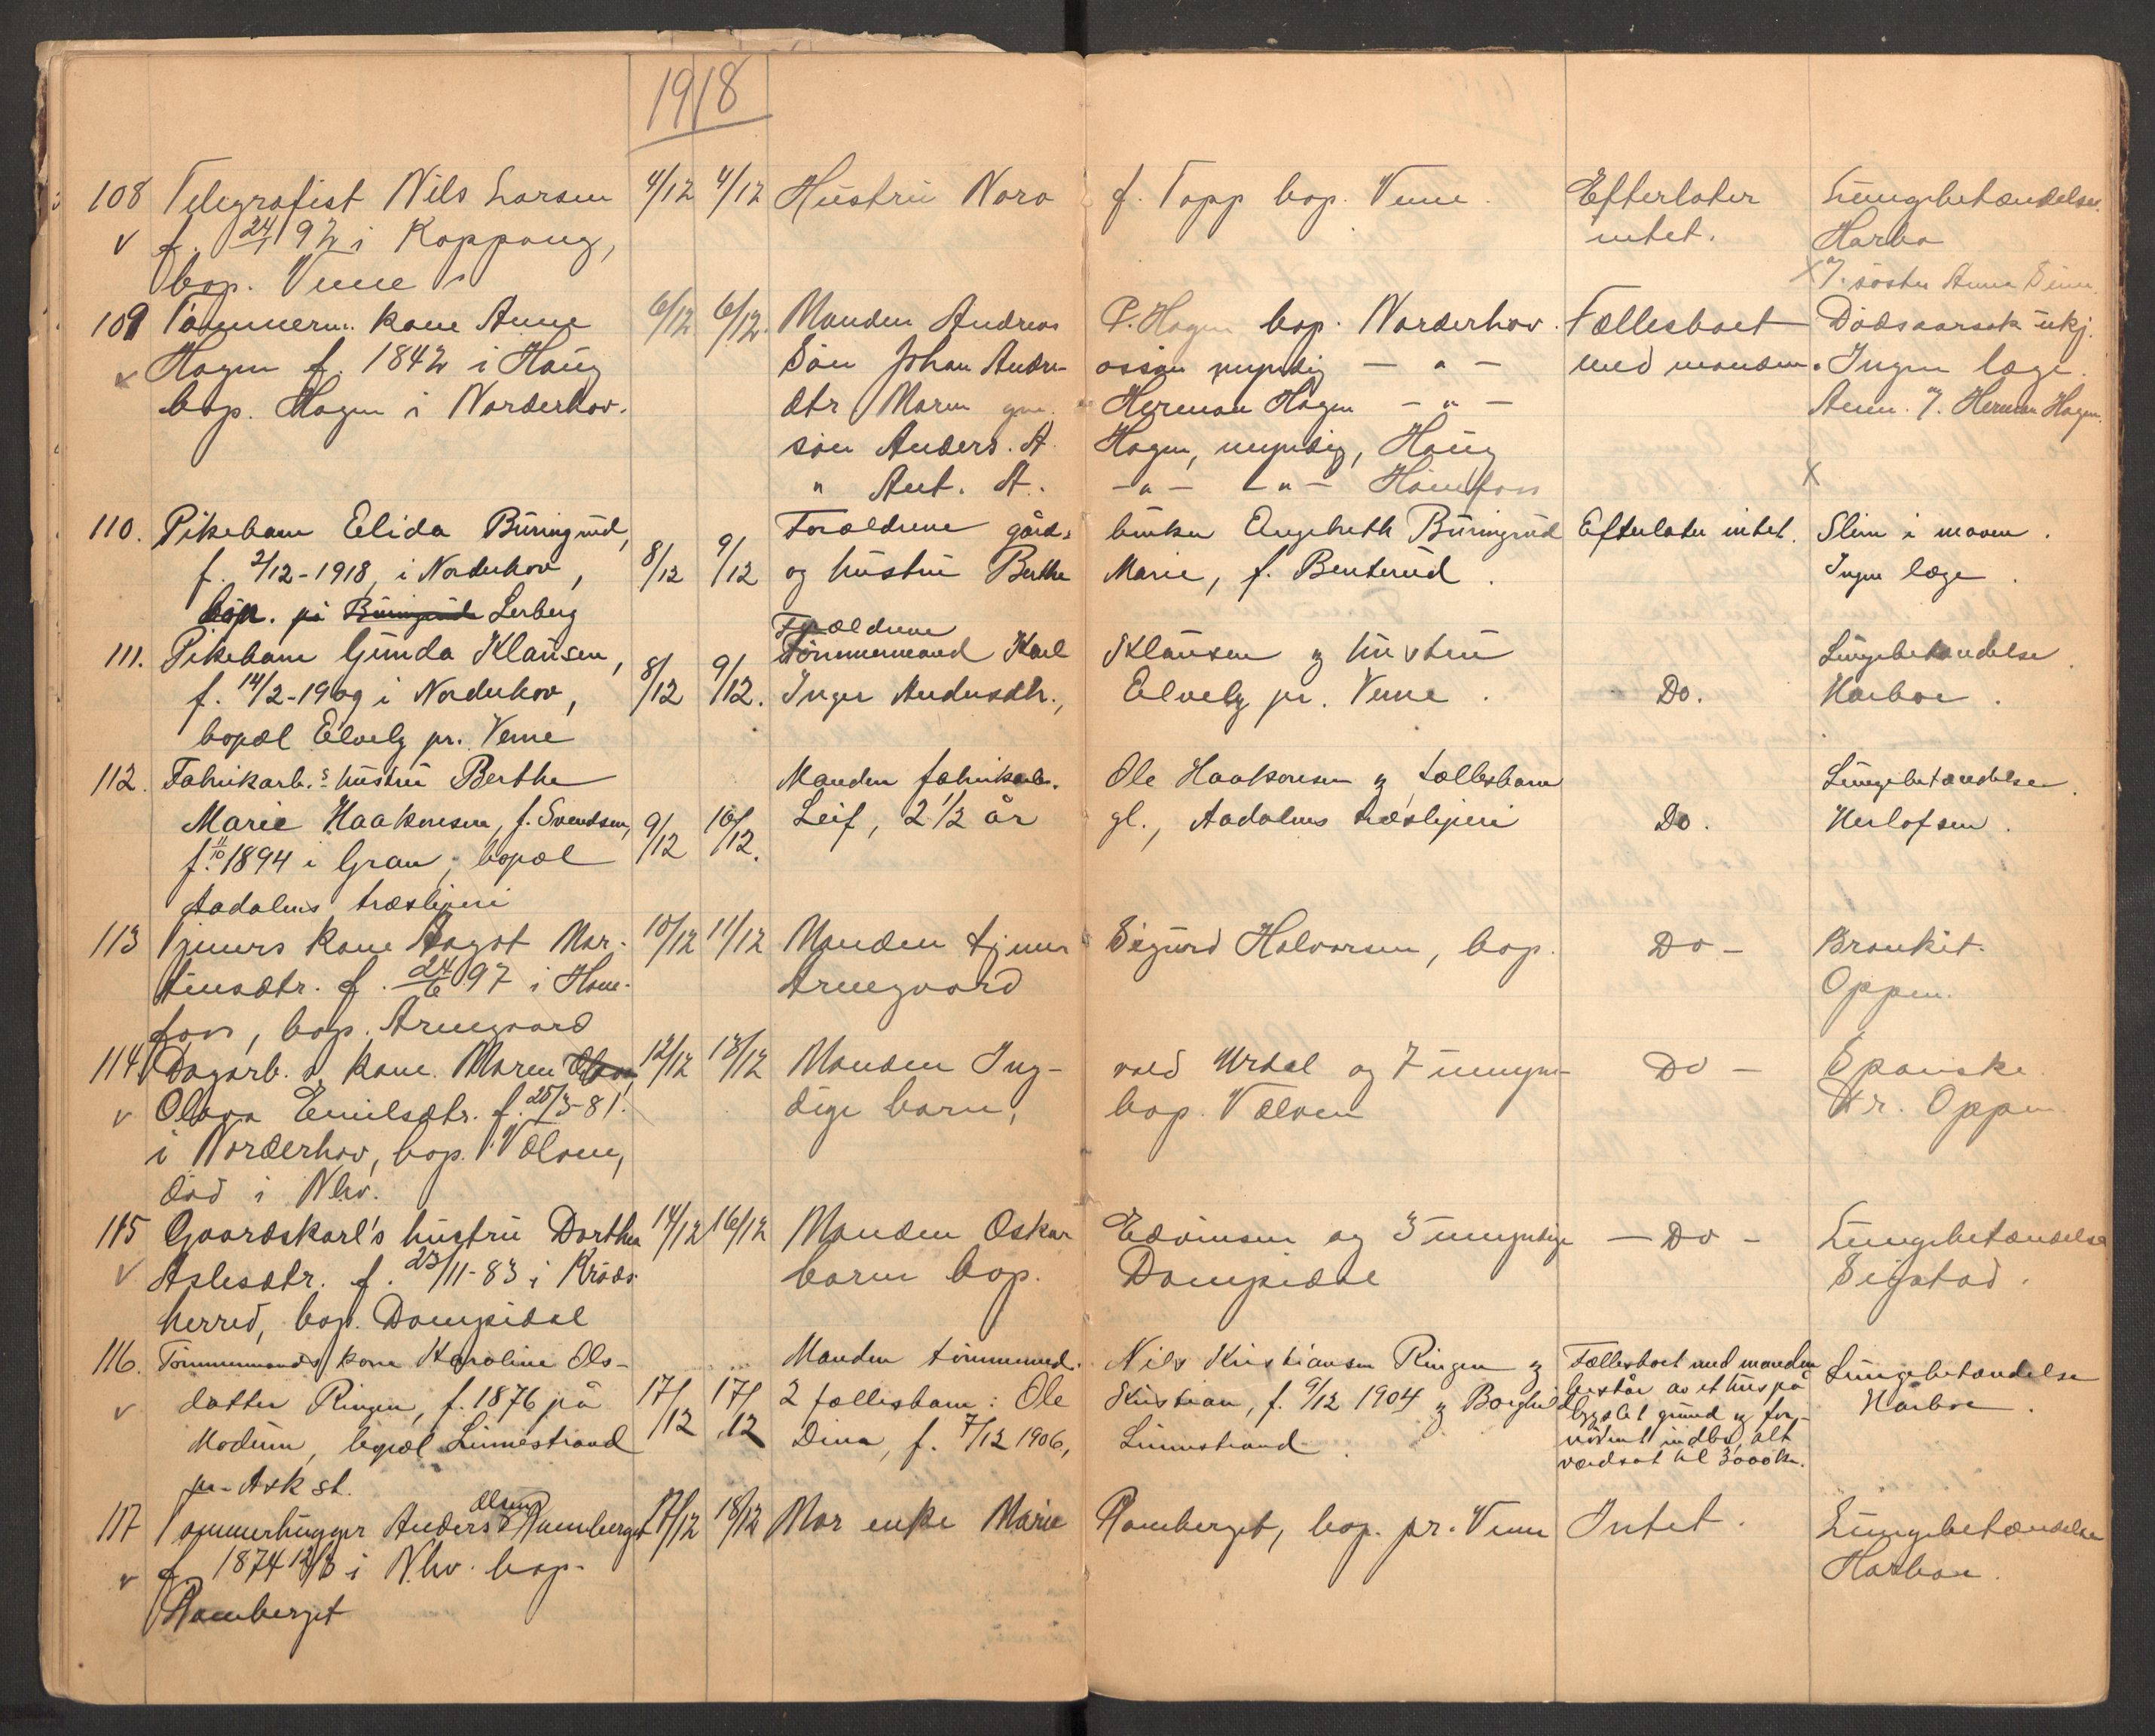 1918
108 Telegrafist Nils Larsen 4/12 4/12 Hustru Nora f. Topp bop. Veme. Efterlater Lungebetændelse.
v f. 24/1 92 i Koppang, intet. Harbo
bop. Veme
X ag 7. søster Anna
109 Tømmerm. kone Anne 6/12 6/12. Manden Andreas P. Hagen bop. Norderhov. Fællesboet Dødsaarsak ukj.
v Hagen f. 1842 i Haug Søn Johan Andre- assøn myndig — " — med manden. Ingen læge.
bop. Hagen i Norderhov. dtr Maren gm. Herman Hagen — " — Anm. ag 7. Herman Hagen.
søn Anders. A. Hagen, myndig, Haug
" Ant. A. — " — — " — Hønefoss X
110. Pikebarn Elida Buringrud, Forældrene gård- bruker Engebreth Buringrud Efterlater intet. Slim i maven.
f. 2/12-1918, i Norderhov, 8/12 9/12 og hustru Berthe Marie, f. Benterud. Ingen læge.
bop. på Buringrud Lerberg
111. Pikebarn Gunda Klausen, Forældrene Tømmermand Karl Klausen og hustru Lungebetændelse.
f. 14/2-1909 i Norderhov, 8/12 9/12. Inger Andersdtr., Elvely pr. Veme. Do. Harboe.
bopæl Elvely pr. Veme
112. Fabrikarb.s hustru Berthe Manden fabrikarb. Ole Haakonsen og fællesbarn Lungebetændelse.
Marie Haakonsen, f. Svendsen, 9/12 10/12. Leif, 2 1/2 år gl., Aadalens træsliperi Do. Herlofsen.
f. 11/10 1894 i Gran, bopæl
Aadalens træsliperi
113 Tjeners kone Aagot Mar- 10/12 11/12 Manden tjener Sigurd Halvorsen, bop. Do — Bronkit.
tinsdtr. f. 24/6 97 i Høne- Arnegaard Oppen.
foss, bop. Arnegaard
114 Dagarb. s. kone Maren Olava 12/12 13/12 Manden Ing- vald Urdal og 7 umyn- Do — Spanske.
v Olava Emilsdtr. f. 25/3-81. dige barn, bop. Vælven Dr. Oppen
i Norderhov, bop. Vælven,
død i Nhv.
115 Gaardskarl's hustru Dorthea 14/12 16/12 Manden Oskar Edvinsen og 3 umyndige — Do — Lungebetændelse
v Aslesdtr. f. 23/11-83 i Krøds- barn bop. Dompidal Sigstad.
herred, bop. Dompidal
116. Tømmermands kone Karoline Ols- Manden tømmermd. Nils Kristiansen Ringen og Fællesboet med manden Lungebetændelse
v datter Ringen, f. 1876 på 17/12 17/12 2 fællesbarn: Ole Kristian, f. 9/12 1904 og Borghild består av et hus på Harboe.
Modum, bopæl Linnestrand Dina, f. 7/12 1906, Linnestrand. bygslet grund og for-
nødent indbo, alt
pr. Ask st. værdsat til 3000 kr.
117 Tømmerhugger Anders Olsen Ramberget 17/12 18/12 Mor enke Marie Ramberget, bop. pr. Veme Intet. Lungebetændelse
v f. 1874 12/3 i Nhv. bop. Harboe.
Ramberget